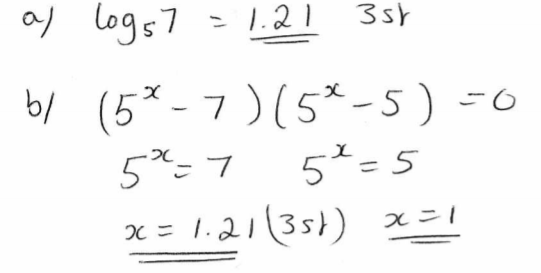 a) log₅7 = 1.21 3sf
b) (5ˣ - 7)(5ˣ - 5) = 0
5ˣ = 7 5ˣ = 5
x = 1.21 (3sf) x = 1